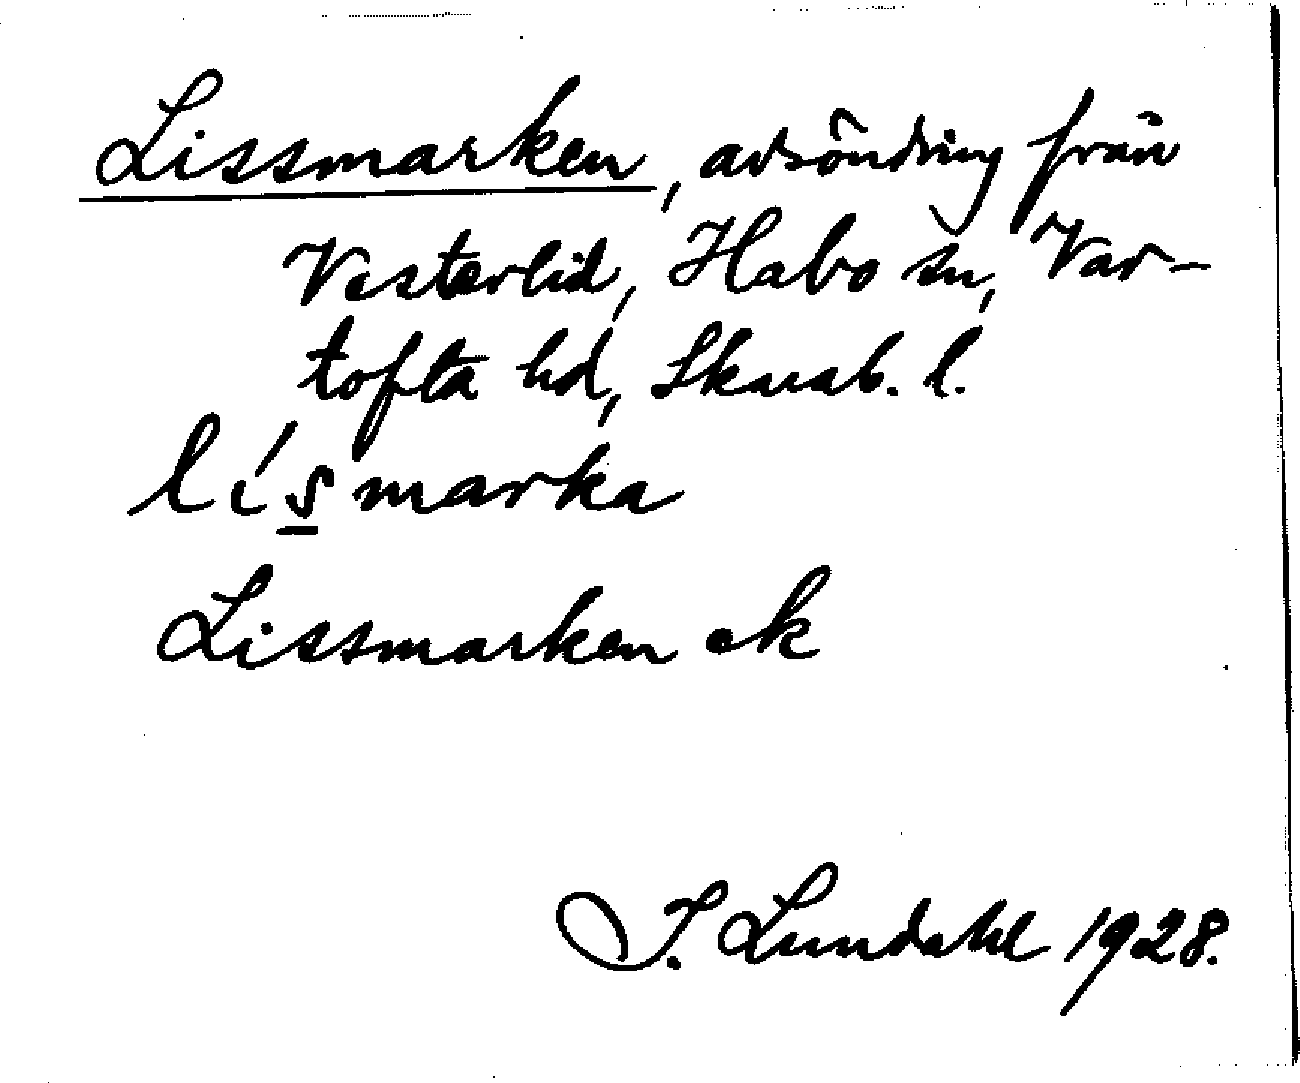 Lissmarken, avsöndring från
Vesterlid, Habo sn, Var-
tofta hd, Skarab. l.
lísmarka
Lissmarken ek
I. Lundahl 1928.